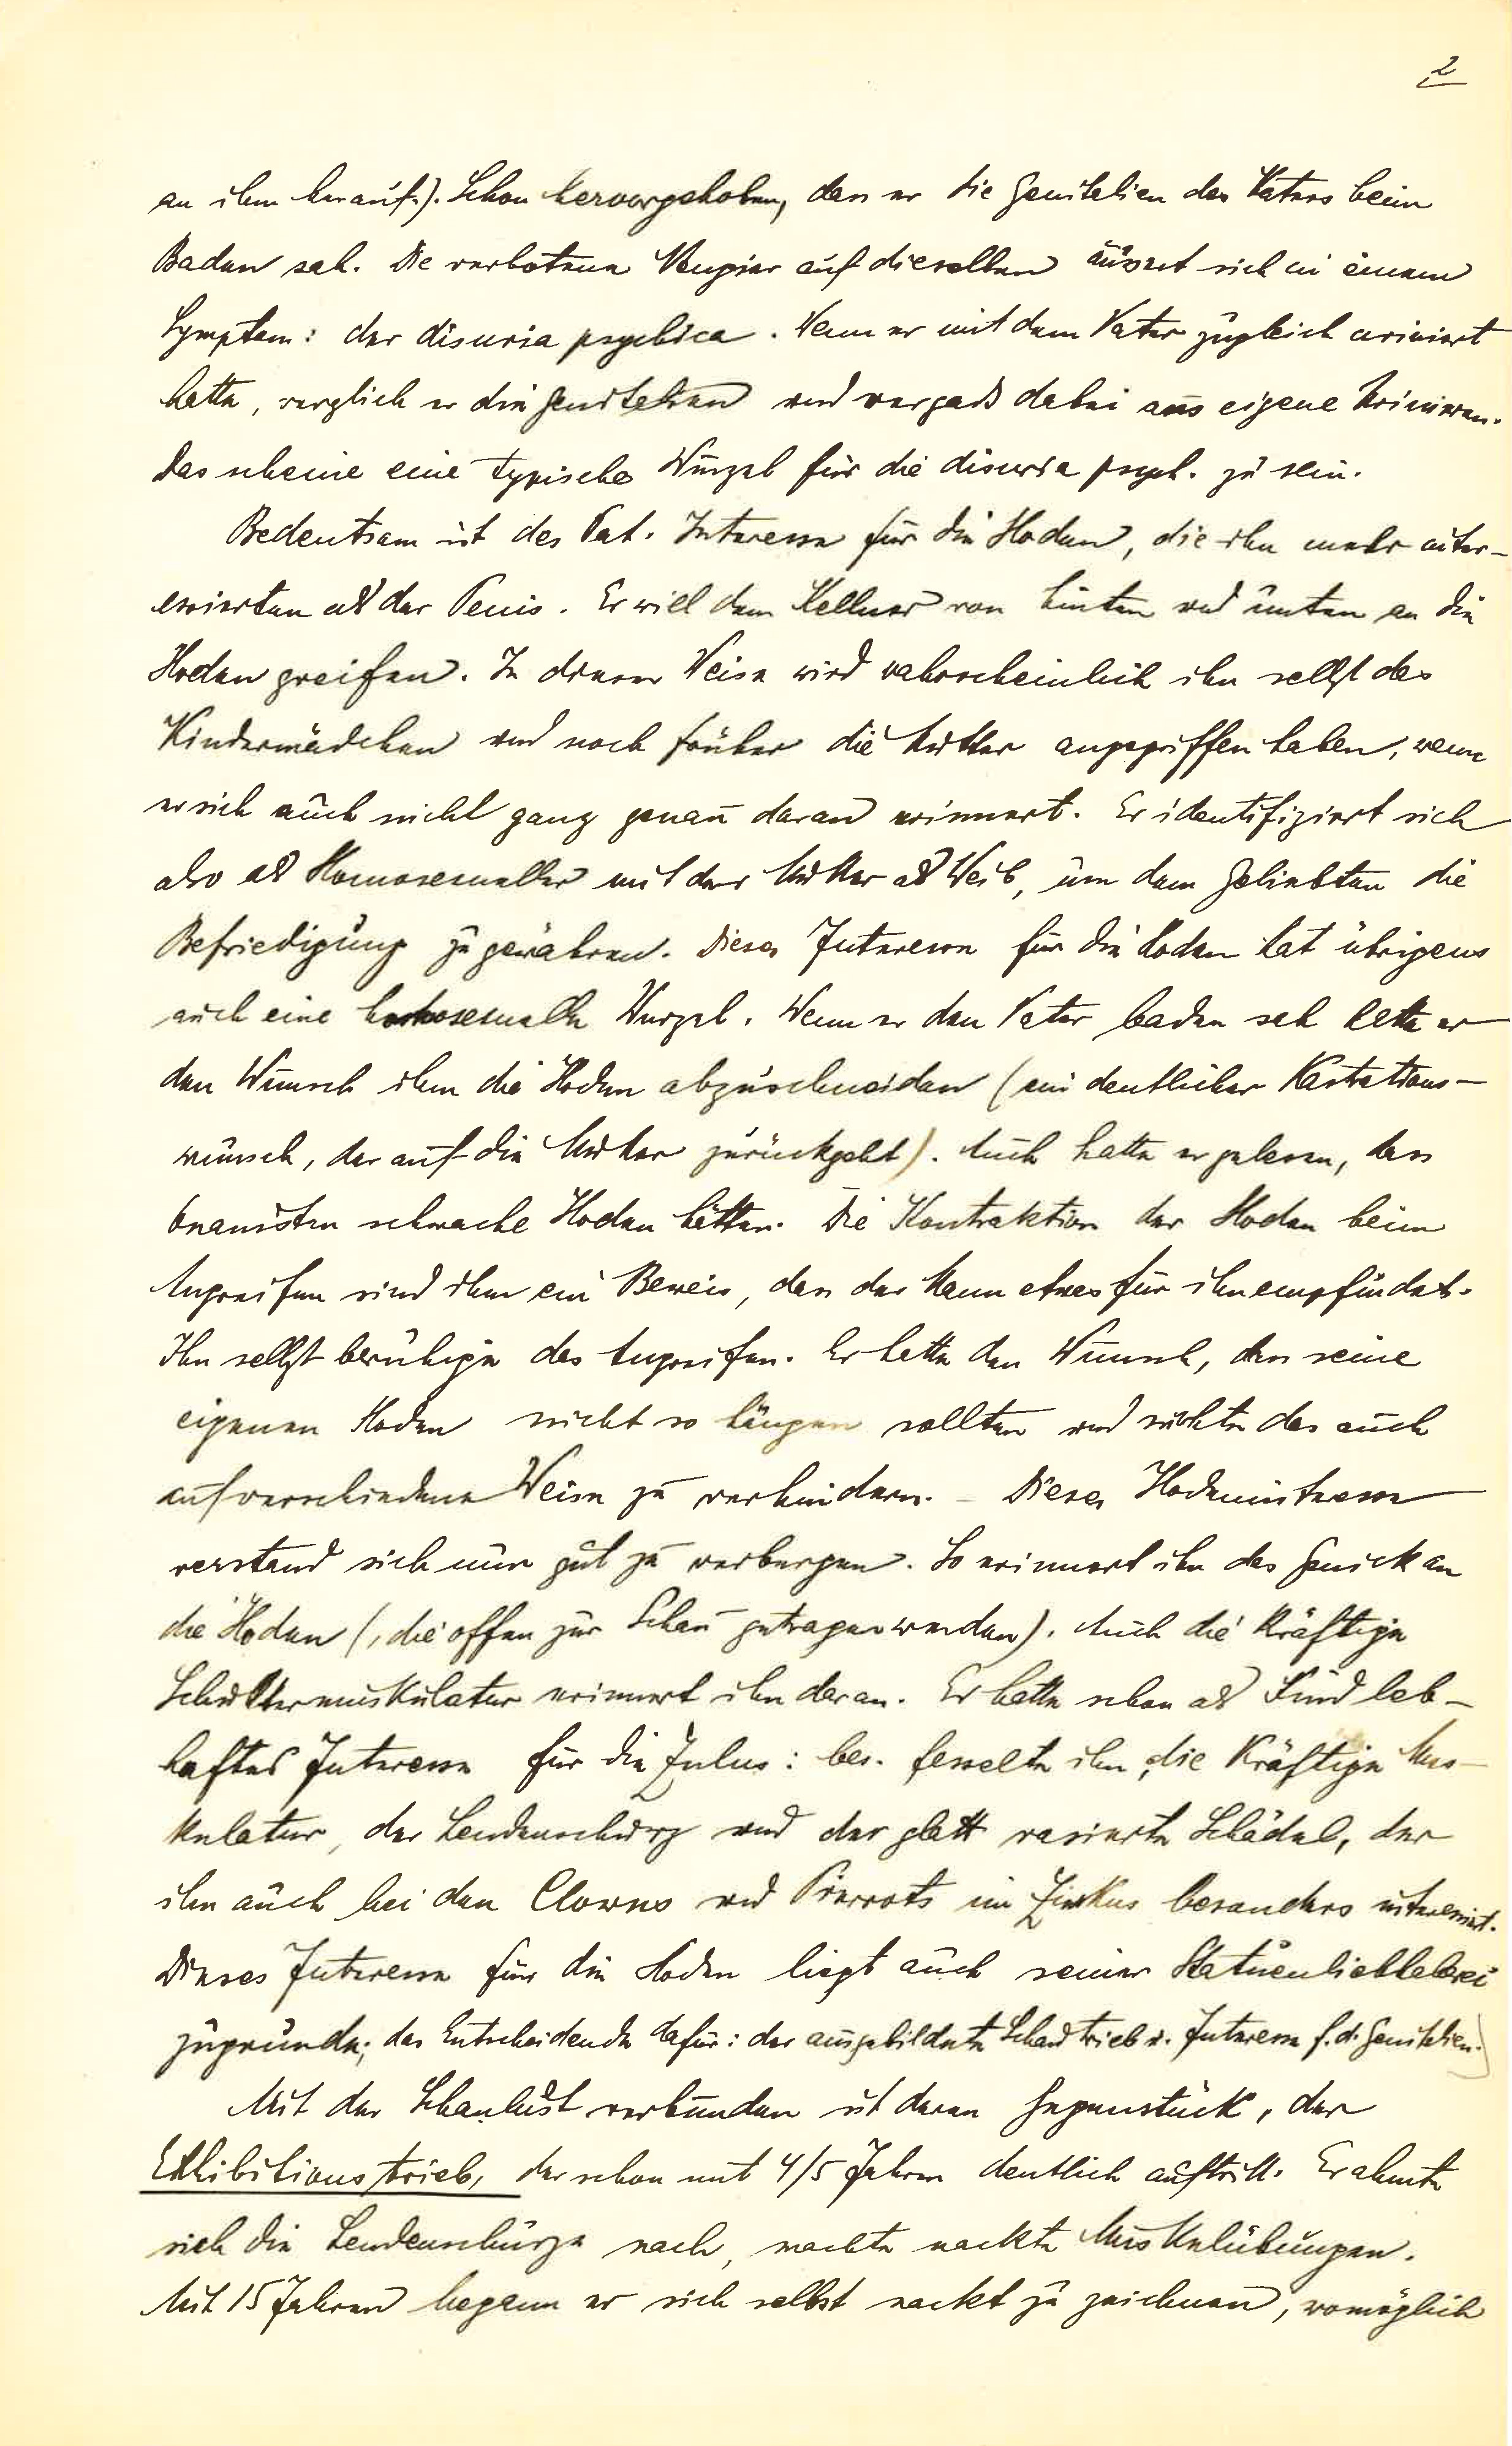 2
an ihm herauf.). Schon hervorgehoben, dass er die Genitalien des Vaters beim
Baden sah. Die verbotene Neugier auf dieselben äussert sich in einem
Symptom: der disuria psychica. Wenn er mit dem Vater zugleich uriniert
hatte, verglich er die Genitalien und vergass dabei aufs eigene Urinieren.
Das scheine eine typische Wurzel für die disuria psych. zu sein.
Bedeutsam ist des Pat. Interesse für die Hoden, die ihn mehr inter-
essierten als der Penis. Er will dem Kellner von hinten und unten an die
Hoden greifen. In dieser Weise wird wahrscheinlich ihn selbst das
Kindermädchen und noch früher die Mutter angegriffen haben, wenn
er sich auch nicht ganz genau daran erinnert. Er identifiziert sich
also als Homosexueller mit der Mutter als Weib, um dem Geliebten die
Befriedigung zu gewähren. Dieses Interesse für die Hoden hat übrigens
auch eine Wurzel. Wenn er den Vater baden sah hatte er
den Wunsch ihm die Hoden abzuschneiden (ein deutlicher Kastrations-
wunsch, der auf die Mutter zurückgeht). Auch hatte er gelesen, dass
Onanisten schwache Hoden hätten. Die Kontraktion der Hoden beim
Angreifen sind ihm ein Beweis, dass der Mann etwas für ihn empfindet.
Ihn selbst beruhige das Angreifen. Er hatte den Wunsch, dass seine
eigenen Hoden nicht so hängen sollten und suchte das auch
auf verschiedene Weise zu verhindern. - Dieses Hodeninteresse
verstand sich nur gut zu verbergen. So erinnert ihn das Genick an
die Hoden (, die offen zur Schau getragen werden). Auch die kräftige
Schultermuskulatur erinnert ihn daran. Er hatte schon als Kind leb-
haftes Interesse für die Zulus: bes. fesselte ihn die kräftige Mus-
kulatur, der Lendenschurz und der glatt rasierte Schädel, der
ihn auch bei den Clowns und Pierrots im Zirkus besonders interessiert.
Dieses Interesse für die Hoden liegt auch seiner Statuenliebhaberei
zugrunde; das Entscheidende dafür: der ausgebildete Schautrieb u. Interesse f. d. Genitalien.
Mit der Schaulust verbunden ist deren Gegenstück, der
Exhibitionstrieb, der schon mit 4/5 Jahren deutlich auftritt. Er ahmte
sich die Lendenschürze nach, machte nackte Muskelübungen.
Mit 15 Jahren begann er sich selbst nackt zu zeichnen, womöglich